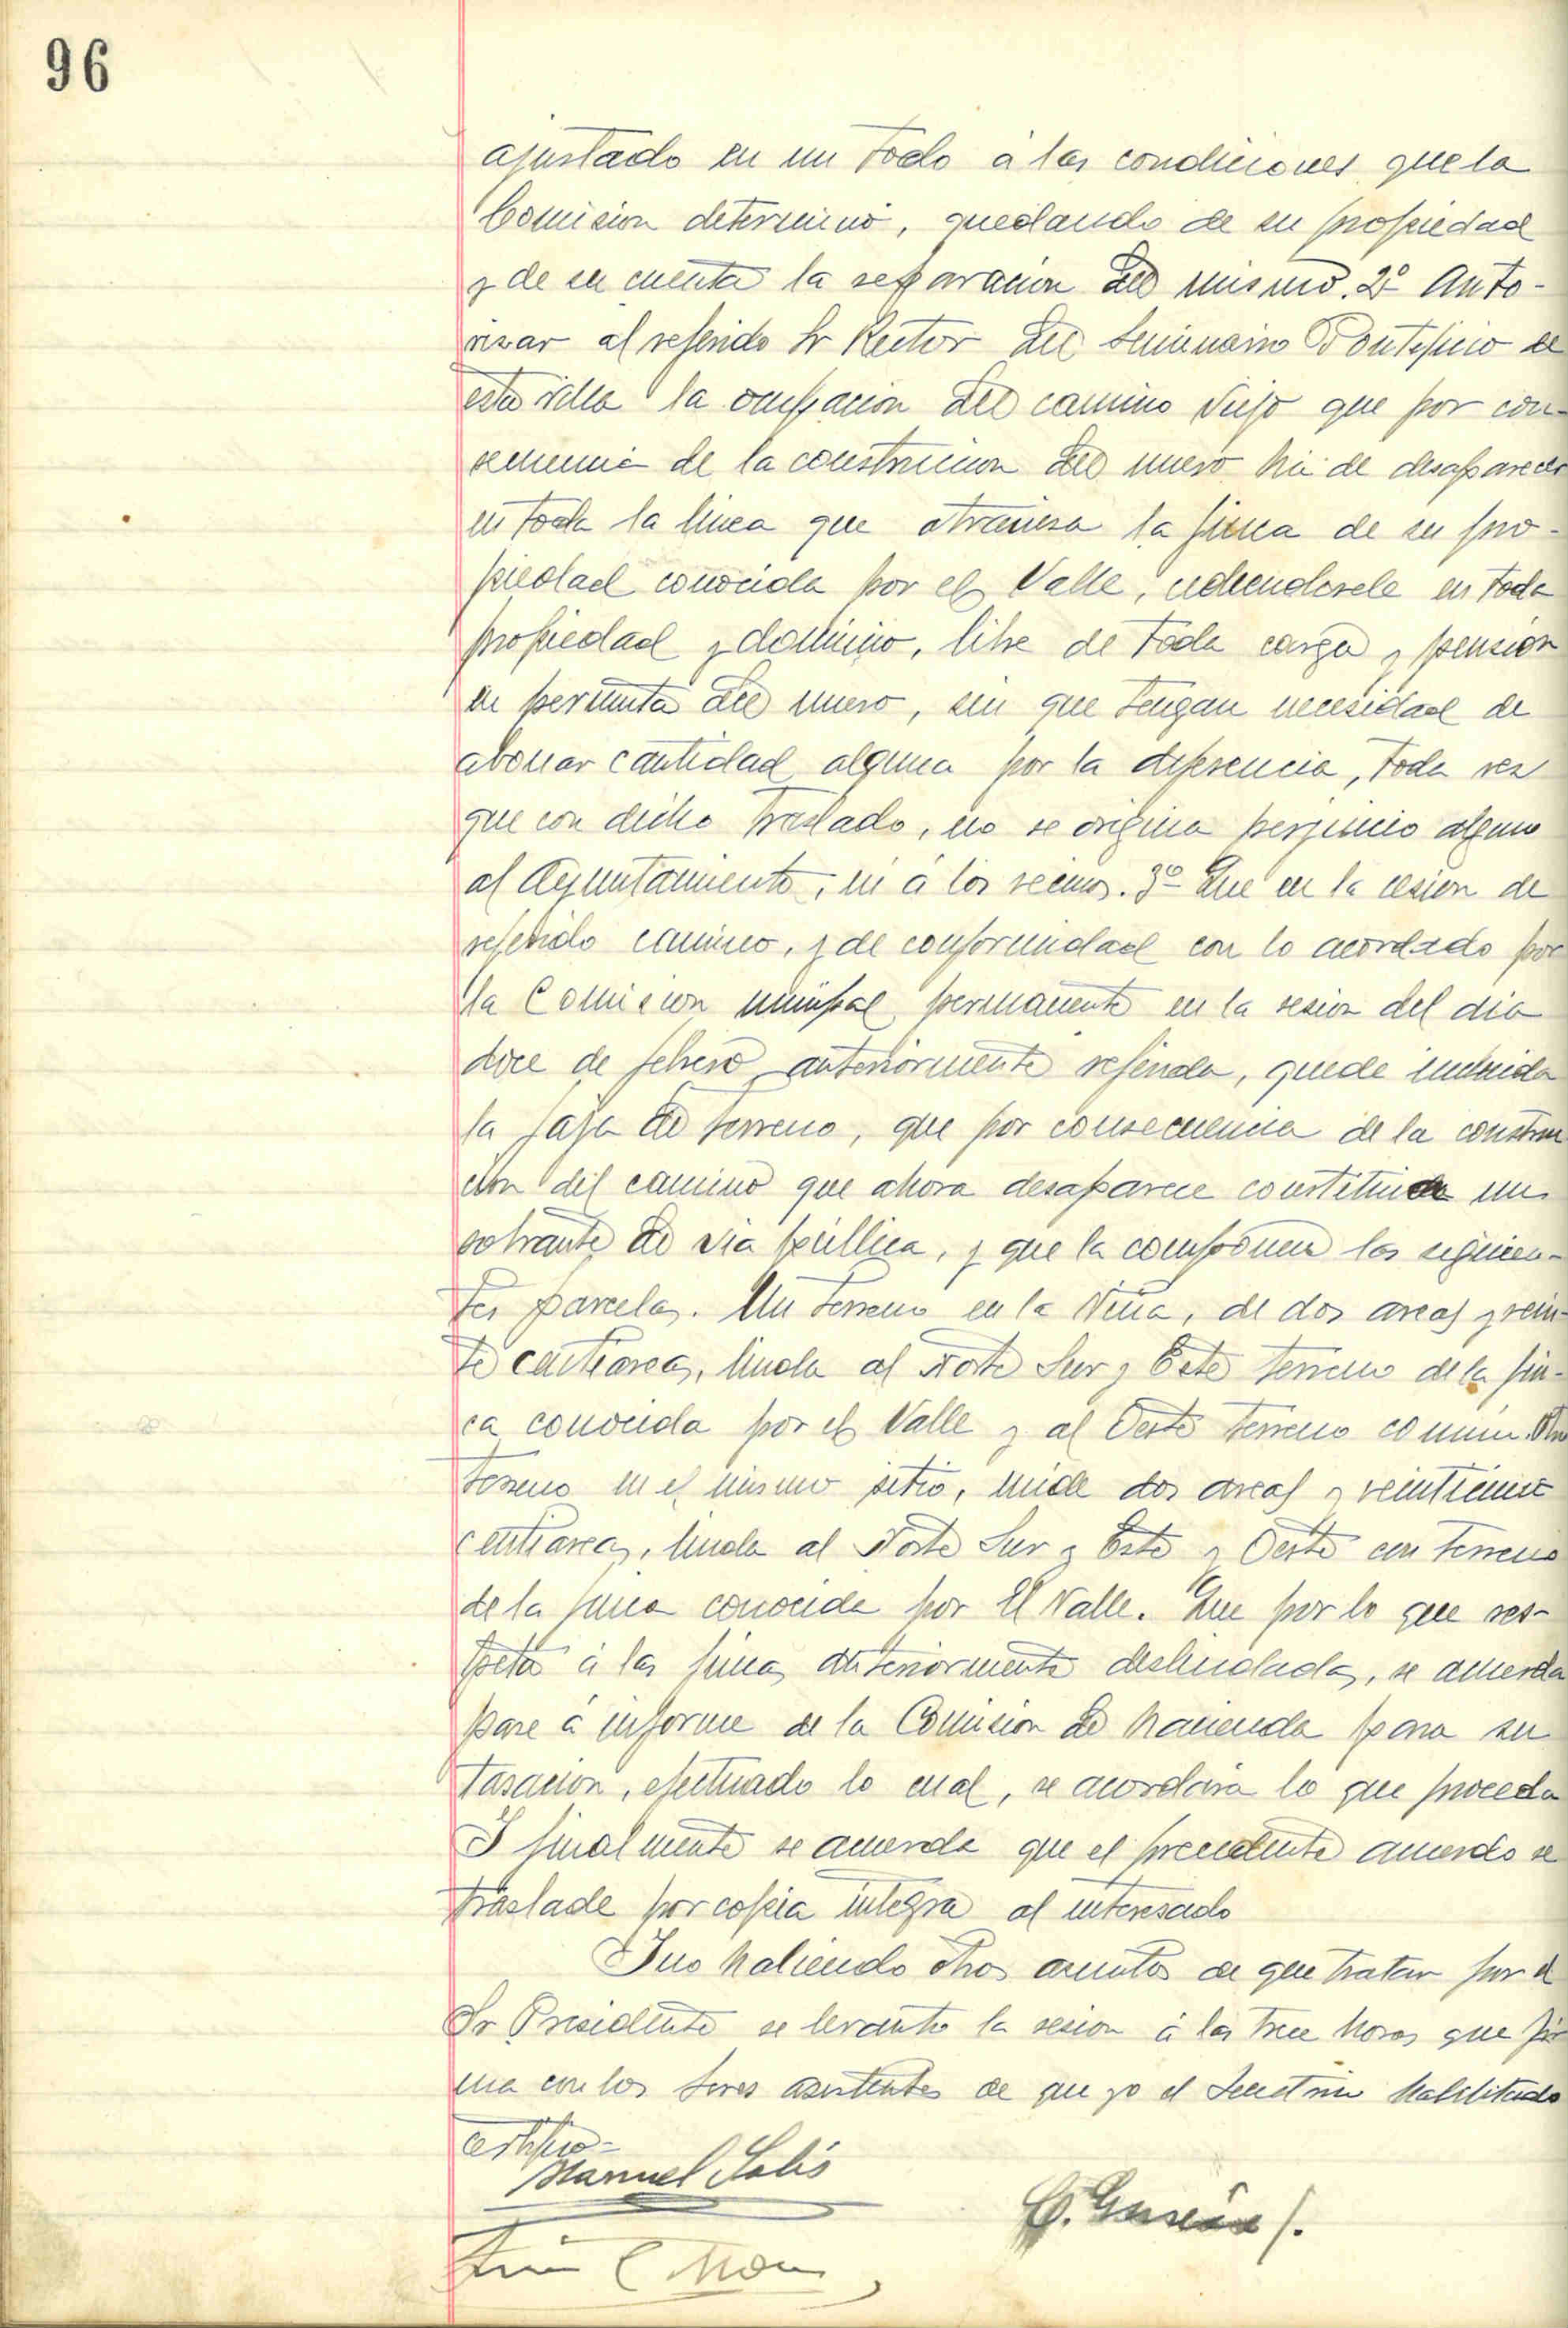 96
ajustado en un todo á las condiciones que la
Comision determinó, quedando de su propiedad
y de su cuenta la separacion del mismo. 2º Auto-
rizar al referido Sr Rector del Seminario Pontificio de
esta villa la ocupacion del camino viejo que por con-
secuencia de la construccion del nuevo ha de desaparecer
en toda la linea que atraviesa la finca de su pro-
piedad conocida por el Valle, cediendosele en toda
propiedad y dominio, libre de toda carga y pension
en permuta del nuevo, sin que tengan necesidad de
abonar cantidad alguna por la diferencia, toda vez
que con dicho traslado, no se origina perjuicio alguno
al Ayuntamiento, ni á los vecinos. 3º Que en la cesion de
referido camino, y de conformidad con lo acordado por
la Comision municipal permanente en la sesion del dia
doce de febrero anteriormente referida, quede incluida
la faja de terreno, que por consecuencia de la construc
cion del camino que ahora desaparece constituida un
sobrante de via pública, y que la componen las siguien-
tes parcelas. Un terreno en la Viña, de dos areas y vein-
te centiareas, linda al Norte Sur y Este terreno de la fin-
ca conocida por el Valle y al Oeste terreno comun. Otro
terreno en el mismo sitio, mide dos areas y veinticinco
centiareas, linda al Norte Sur y Este y Oeste con terreno
de la finca conocida por El Valle. Que por lo que res-
peta á las fincas anteriormente deslindadas, se acuerda
pase á informe de la Comision de hacienda para su
tasacion, efectuado lo cual, se acordará lo que proceda
Y finalmente se acuerda que el precedente acuerdo se
traslade por copia integra al interesado
Y no habiendo otros asuntos de que tratar por el
Sr Presidente se levantó la sesion á las trece horas que fir
ma con los Sores asistentes de que yo el Secretario habilitado
certifico=
Manuel Solis